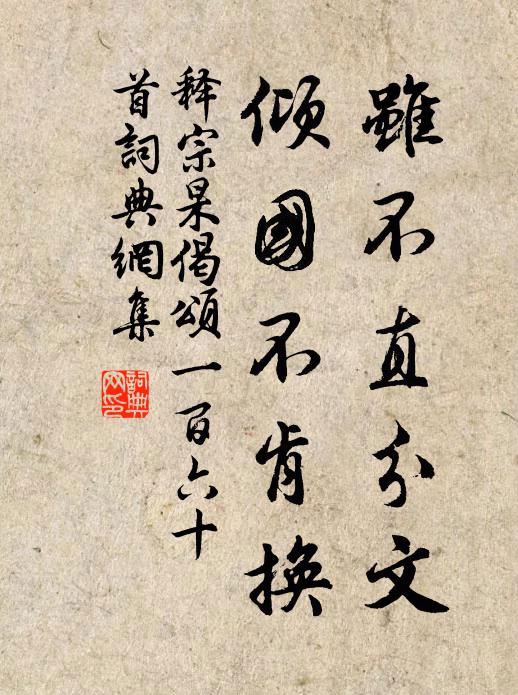 雖不直分文
傾國不肯換
释宗杲偈頌一百六十
首詞典網集
詞典
网印